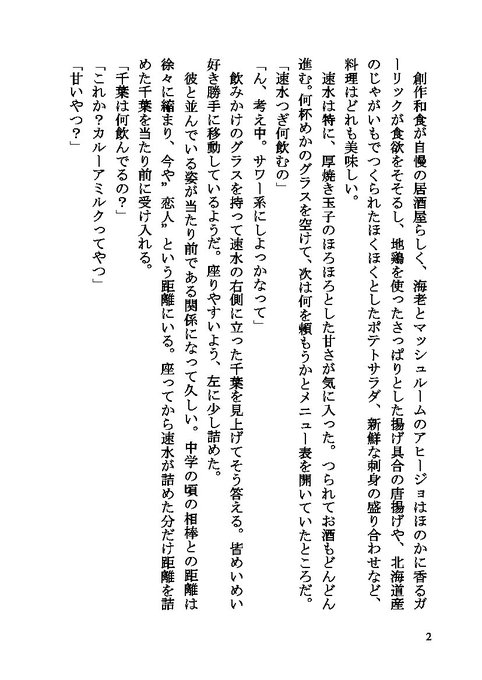 創作和食が自慢の居酒屋らしく、海老とマッシュルームのアヒージョはほのかに香るガ
ーリックが食欲をそそるし、地鶏を使ったさっぱりとした揚げ具合の唐揚げや、北海道産
のじゃがいもでつくられたほくほくとしたポテトサラダ、新鮮な刺身の盛り合わせなど、
料理はどれも美味しい。
速水は特に、厚焼き玉子のほろほろとした甘さが気に入った。つられてお酒もどんどん
進む。何杯めかのグラスを空けて、次は何を頼もうかとメニュー表を開いていたところだ。
「速水つぎ何飲むの」
「ん、考え中。サワー系にしよっかなって」
飲みかけのグラスを持って速水の右側に立った千葉を見上げてそう答える。皆めいめい
好き勝手に移動しているようだ。座りやすいよう、左に少し詰めた。
彼と並んでいる姿が当たり前である関係になって久しい。中学の頃の相棒との距離は
徐々に縮まり、今や”恋人”という距離にいる。座ってから速水が詰めた分だけ距離を詰
めた千葉を当たり前に受け入れる。
「千葉は何飲んでるの？」
「これか？カルーアミルクってやつ」
「甘いやつ？」
2